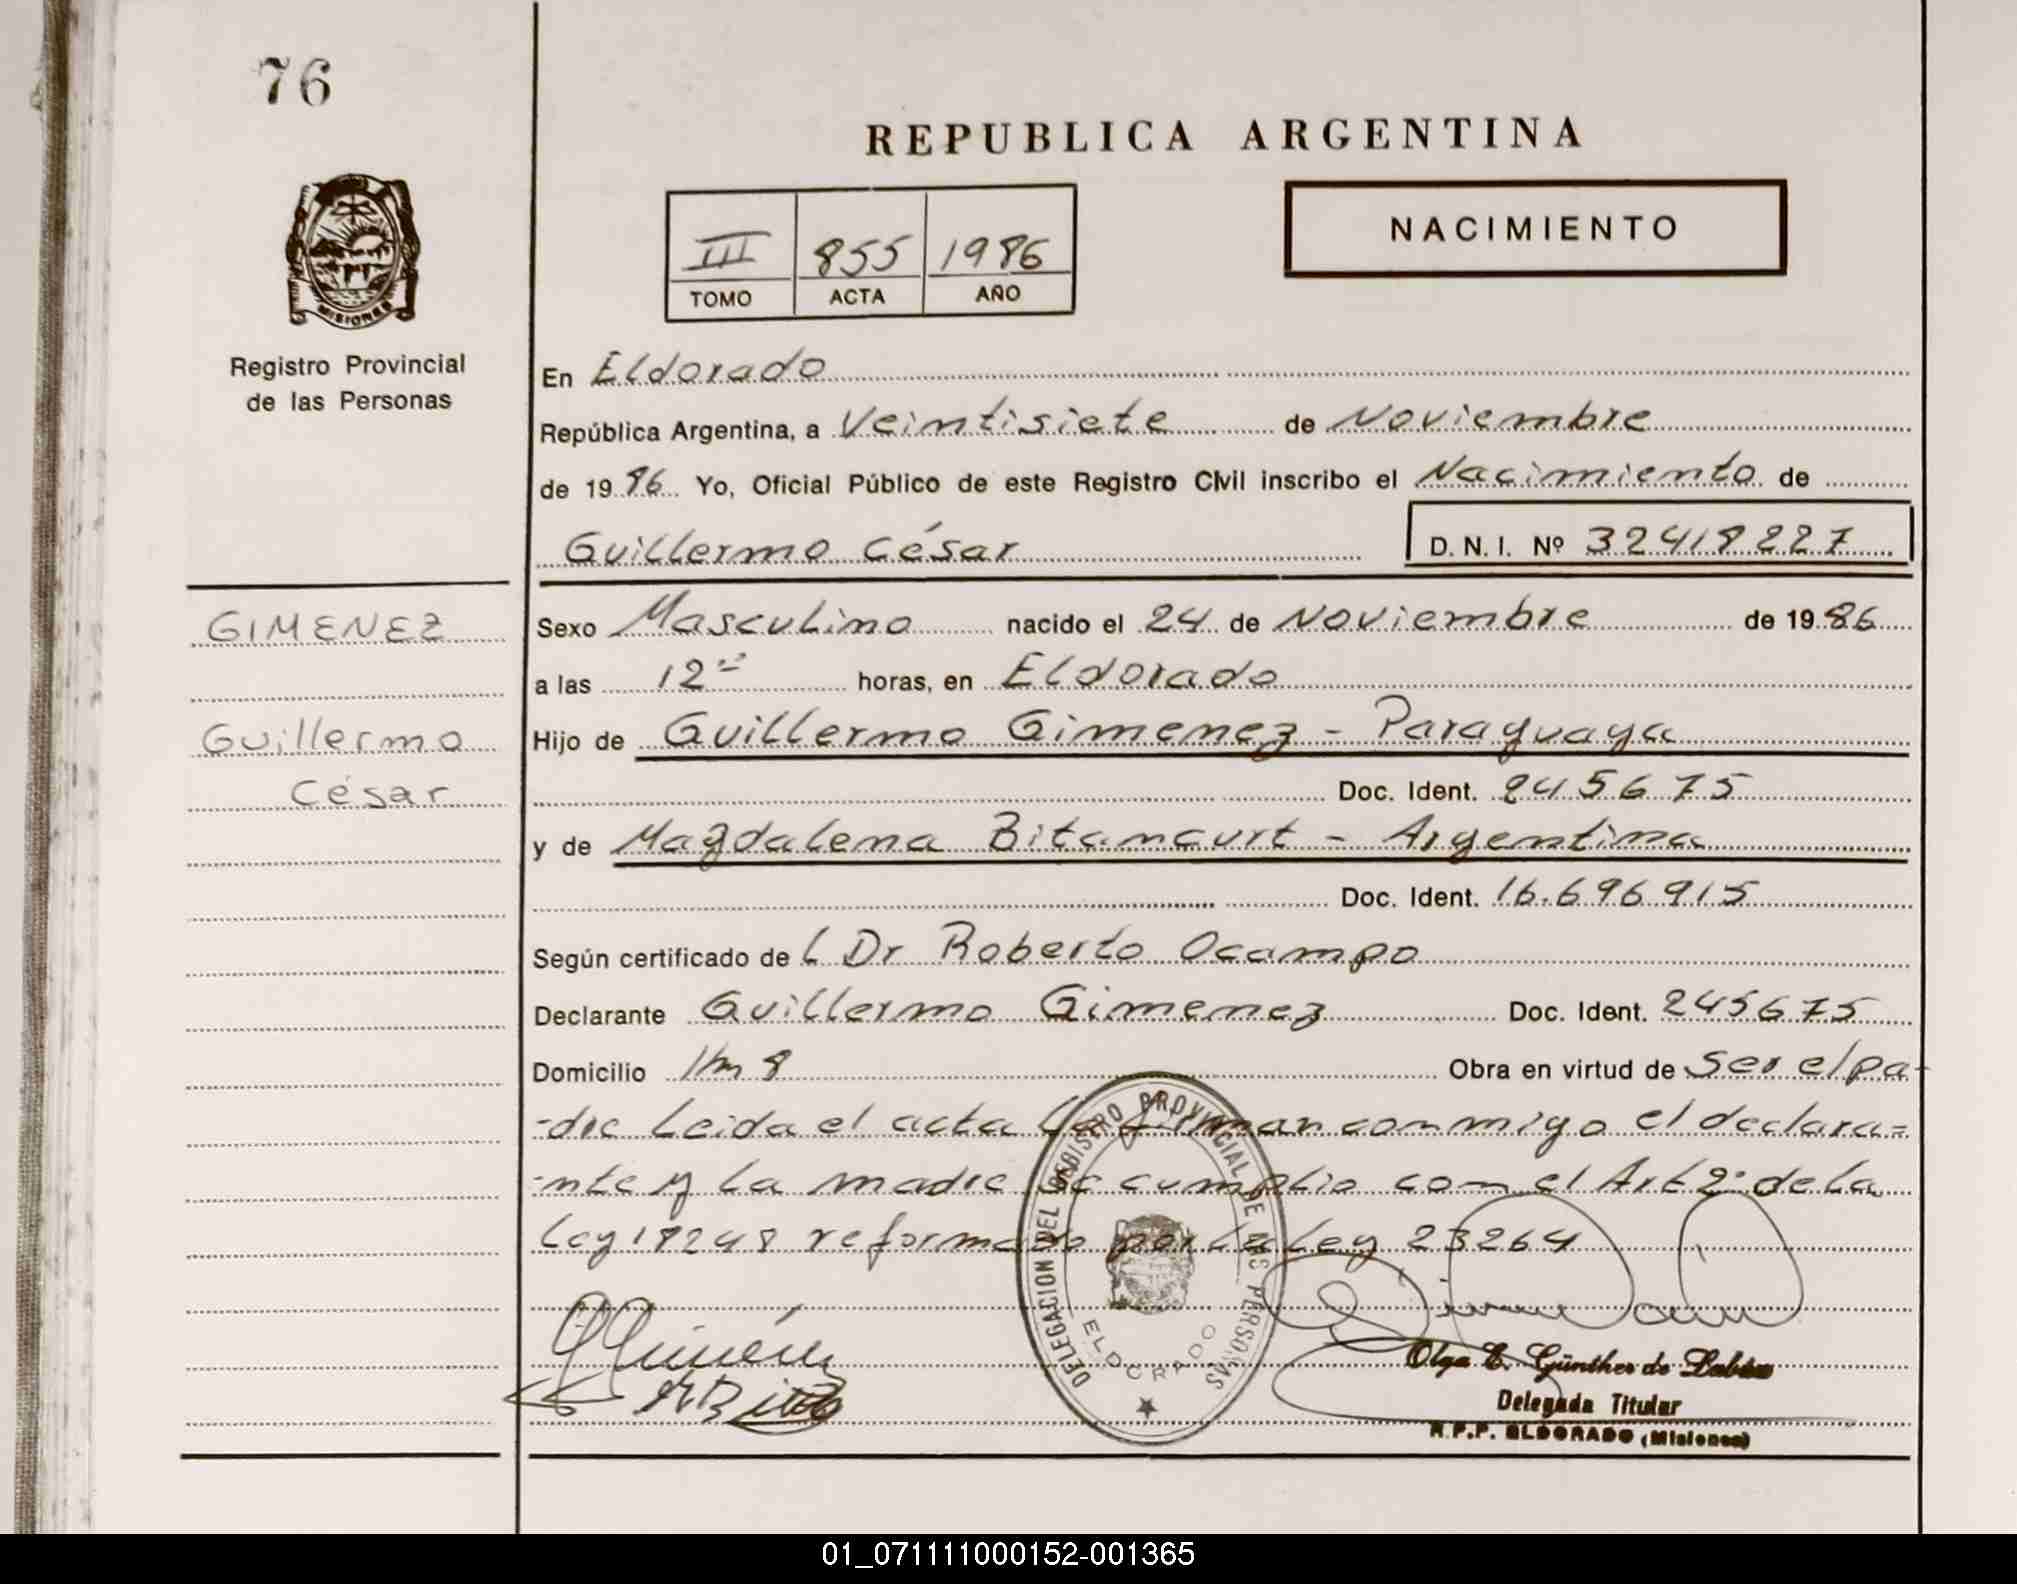 76
REPUBLICA ARGENTINA
NACIMIENTO
III 855 1986
TOMO ACTA AÑO
MISIONES
Registro Provincial
de las Personas
En Eldorado
República Argentina, a Veintisiete de Noviembre
de 19 86 Yo, Oficial Público de este Registro Civil inscribo el Nacimiento de
Guillermo César D. N. I. Nº 32418227
GIMENEZ
Guillermo
César
Sexo Masculino nacido el 24 de Noviembre de 19 86
a las 12 horas, en Eldorado
Hijo de Guillermo Gimenez - Paraguaya
Doc. Ident. 245675
y de Magdalena Bitancurt - Argentina
Doc. Ident. 16.696915
Según certificado de l Dr Roberto Ocampo
Declarante Guillermo Gimenez Doc. Ident. 245675
Domicilio Km 8 Obra en virtud de Ser el pa-
-dre Leida el acta la firman conmigo el declara=
-nte y La madre se cumplio con el Art 2º de La
Ley 18248 reformado por la Ley 23264
DELEGACION DEL REGISTRO PROVINCIAL DE LAS PERSONAS
ELDORADO
Olga E. Günther de
Delegada Titular
R.P.P. ELDORADO (Misiones)
01_071111000152-001365